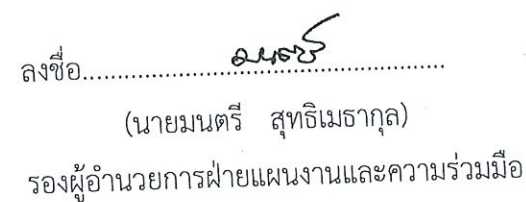 ลงชื่อ.......................................................
(นายมนตรี สุทธิเมธากุล)
รองผู้อำนวยการฝ่ายแผนงานและความร่วมมือ